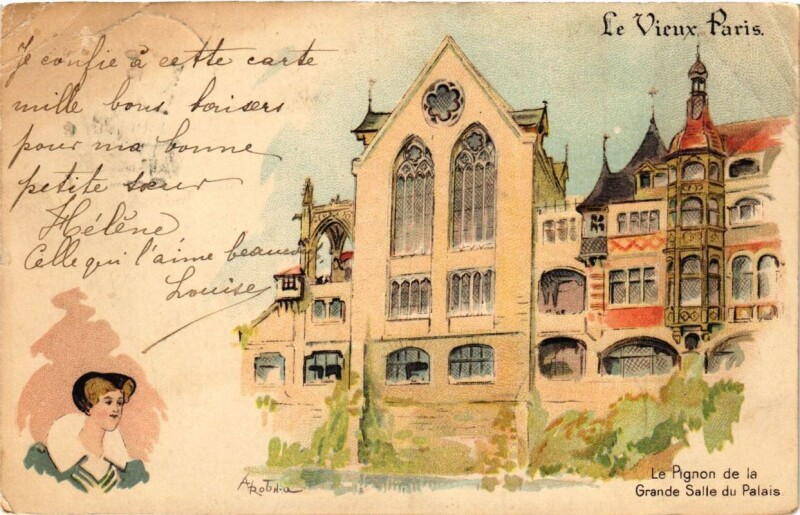 Le Vieux Paris.
Je confie à cette carte
mille bons baisers
pour ma bonne
petite sœur
Hélène
Celle qui l'aime beaucoup
Louise
A Robida
Le Pignon de la
Grande Salle du Palais